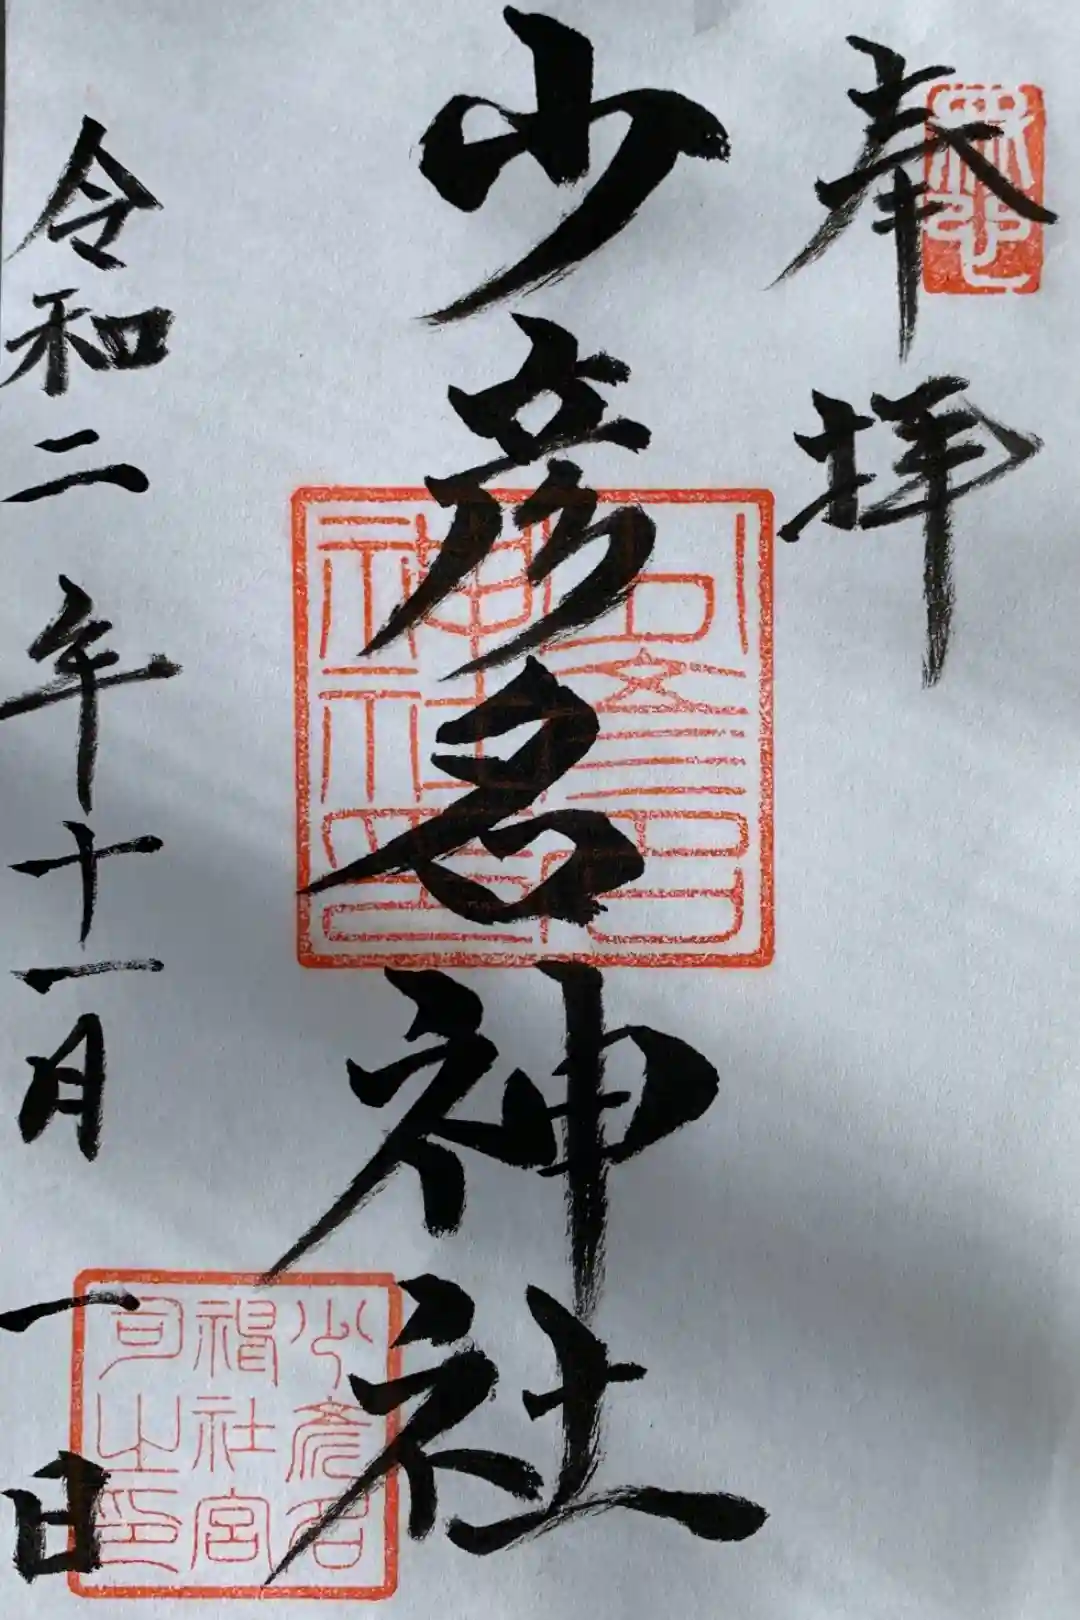 奉拝
少彦名神社
令和二年十一月一日
少彦名
神社宮
司之印